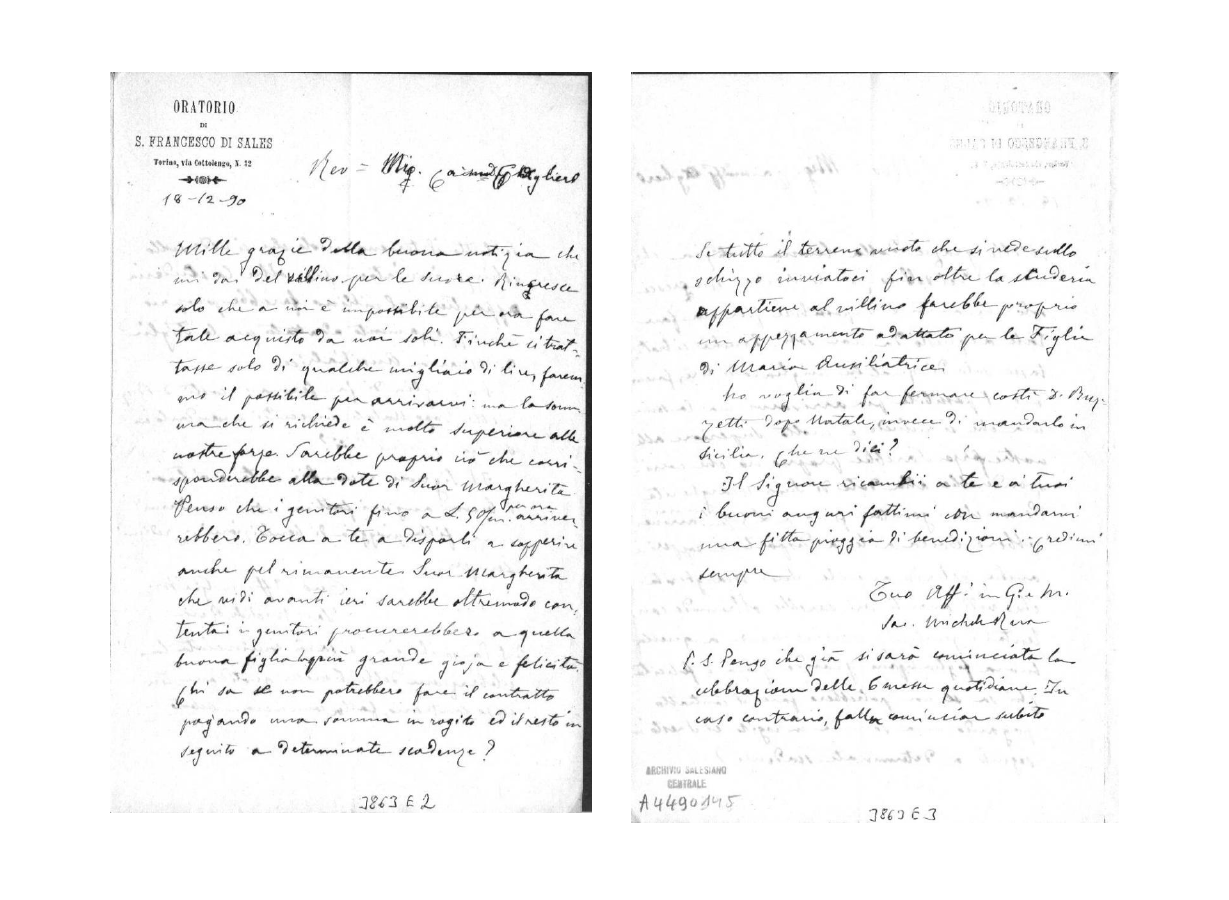 ORATORIO
DI
S. FRANCESCO DI SALES
Torino, via Cottolengo, N. 32
18-12-90
Rev = Cagliero
Mille grazie della buona notizia che
mi dai del villino per le suore. Rincresce
solo che a noi è impossibile per ora fare
tale acquisto da noi soli. Finchè si trat-
tasse solo di qualche migliaio di lire, farem
mo il possibile per arrivarvi: ma la som
ma che si richiede è molto superiore alle
nostre forze. Sarebbe proprio ciò che corri-
sponderebbe alla dote di Suor Margherita
Penso che i genitori fino a L. 50/m. per ora arrive
rebbero. Tocca a te a disporli a sopperire
anche pel rimanente. Suor Margherita
che vidi avanti ieri sarebbe oltremodo con
tenta i genitori procurerebbero a quella
buona figlia la più grande gioja e felicità.
Chi sa se non potrebbero fare il contratto
pagando una somma in rogito ed il resto in
seguito a determinate scadenze?
3863 E 2
Se tutto il terreno vuoto che si vede sullo
schizzo inviatoci fin oltre la scuderia
appartiene al villino sarebbe proprio
un appezzamento adattato per le Figlie
di Maria Ausiliatrice.
ho voglia di far fermare costì D. Buz-
zetti dopo Natale, invece di mandarlo in
Sicilia. Che ne dici?
Il Signore ricambii a te e a tuoi
i buoni auguri fattimi con mandarvi
una fitta pioggia di benedizioni. Credimi
sempre
Tuo Aff. in G. e M.
Sac. Michele Rua
P. S. Penso che già si sarà cominciata la
celebrazione delle 6 messe quotidiane. In
caso contrario, falla cominciar subito
ARCHIVIO SALESIANO
CENTRALE
A4490145
3863 E 3